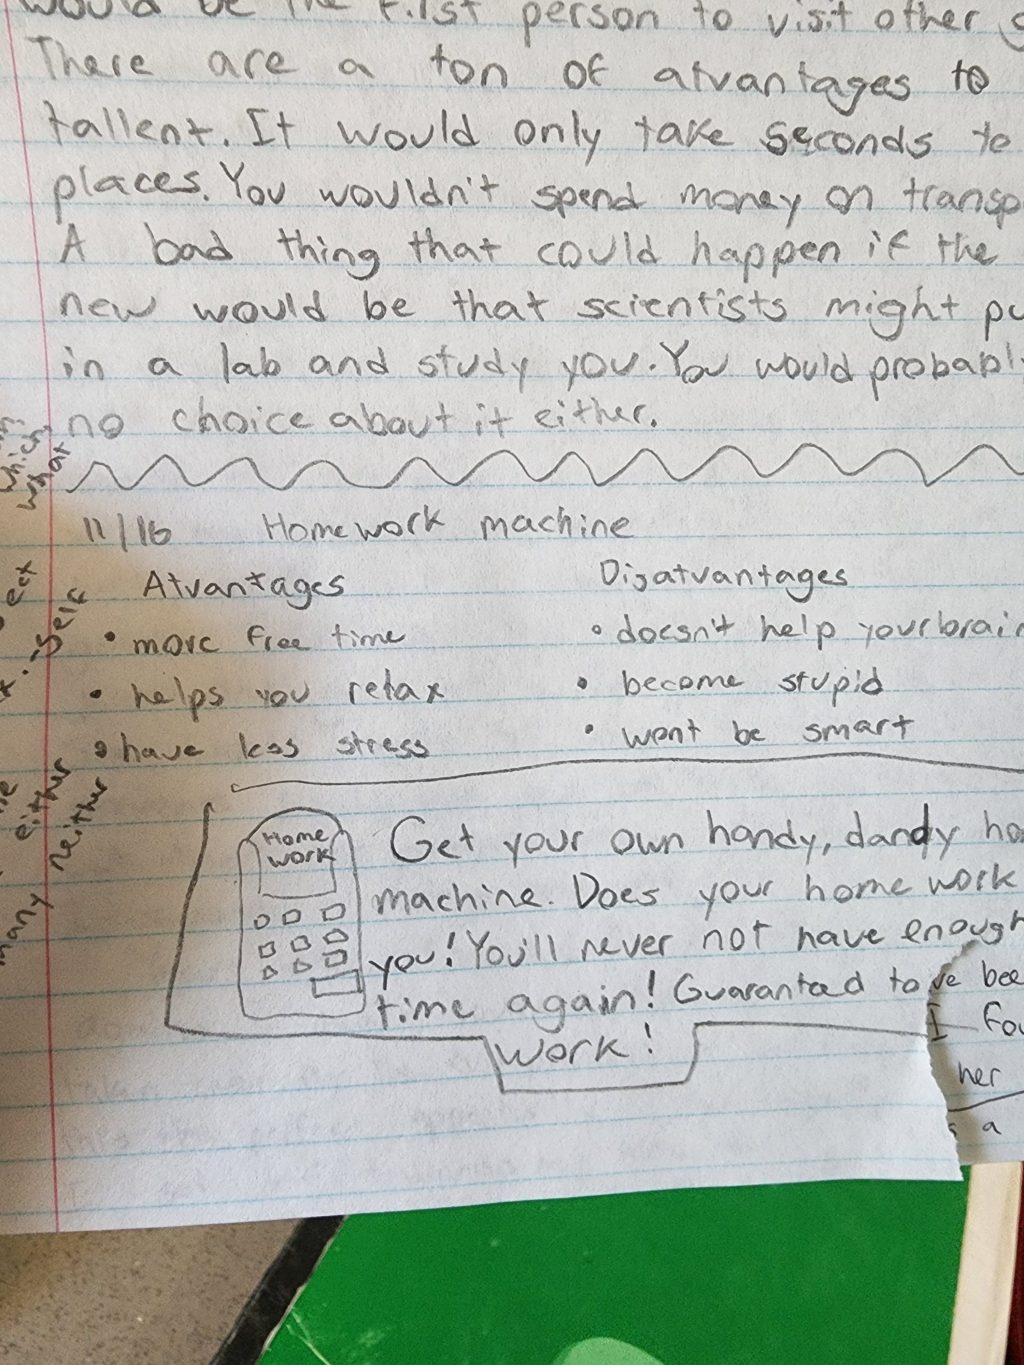 would be the first person to visit other
There are a ton of atvantages to
tallent. It would only take seconds to
places. You wouldn't spend money on
A bad thing that could happen if the
new would be that scientists might
in a lab and study you. You would
no choice about it either.
which
what
self
either
neither
many
11/16 Homework machine
Atvantages
Disatvantages
• more free time
• doesn't help your brain
• helps you relax
• become stupid
• have less stress
• wont be smart
Home
work
Get your own handy, dandy
machine. Does your home work
you! You'll never not have enough
time again! Guaranted to
work!
I
her
a